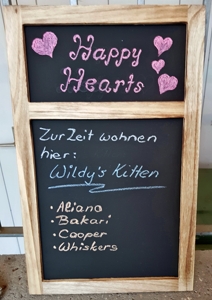 Happy
Hearts
Zur Zeit wohnen
hier:
Wildy's Kitten
• Aliano
• Bakari
• Cooper
• Whiskers